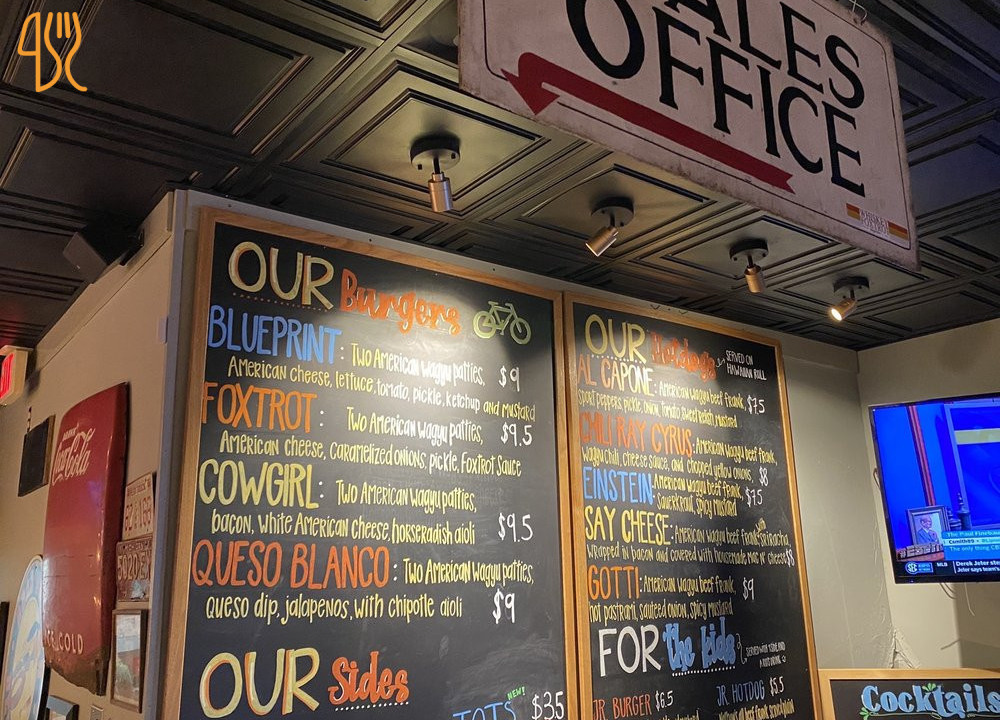 SALES
OFFICE
OUR Burgers
BLUEPRINT: Two American wagyu patties, $9
American cheese, lettuce, tomato, pickle, ketchup and mustard
FOXTROT: Two American wagyu patties, $9.5
American cheese, caramelized onions, pickle, Foxtrot Sauce
COWGIRL: Two American wagyu patties,
bacon, white American cheese, horseradish aioli $9.5
QUESO BLANCO: Two American wagyu patties,
Queso dip, jalapenos, with chipotle aioli $9
OUR Sides
TOTS NEW! $3.5
OUR Hotdogs SERVED ON
HAWAIIAN ROLL
AL CAPONE: American wagyu beef frank, $7.5
sport peppers, pickle, onion, tomato, sweet relish, mustard
CHILI RAY CYRUS: American wagyu beef frank,
wagyu chili, cheese sauce, and chopped yellow onions, $8
EINSTEIN: American wagyu beef frank, $7.5
Sauerkraut, spicy mustard
SAY CHEESE: American wagyu beef frank with sriracha,
wrapped in bacon and covered with homemade mac n' cheese $8
GOTTI: American wagyu beef frank, $9
hot pastrami, sauteed onion, spicy mustard
FOR the kids
JR BURGER $6.5 JR HOTDOG $5.5
Cocktails
Coca-Cola
ICE COLD
The Paul Finebaum
MLB Derek Jeter